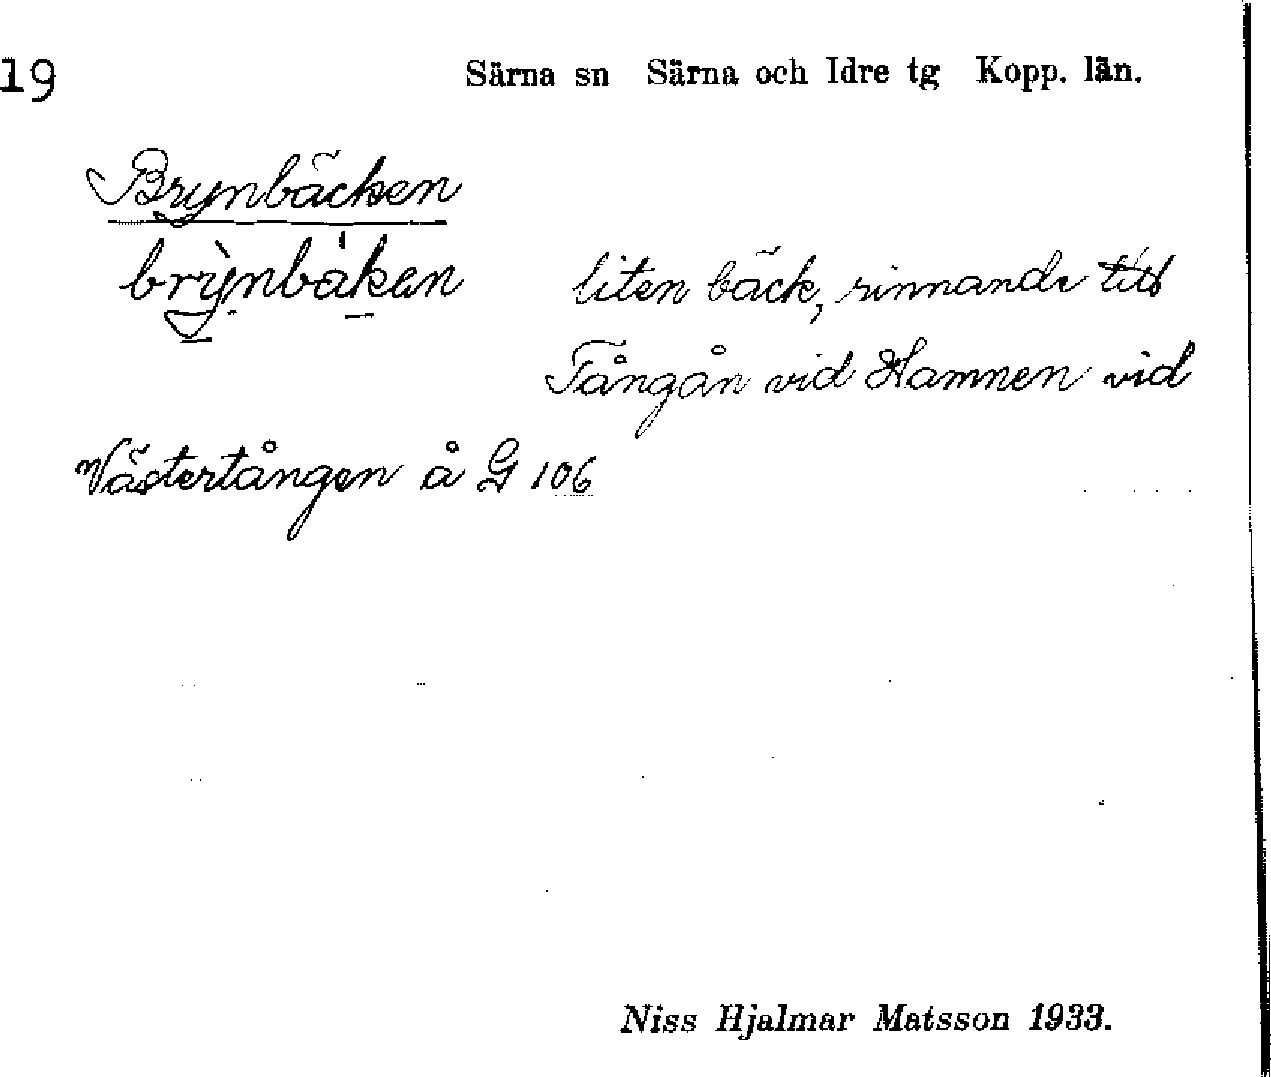 19
Särna sn Särna och Idre tg Kopp. län.
Brynbäcken
brỳnbákan liten bäck, rinnande till
Tångån vid Hamnen vid
Västertången å G 106
Niss Hjalmar Matsson 1933.